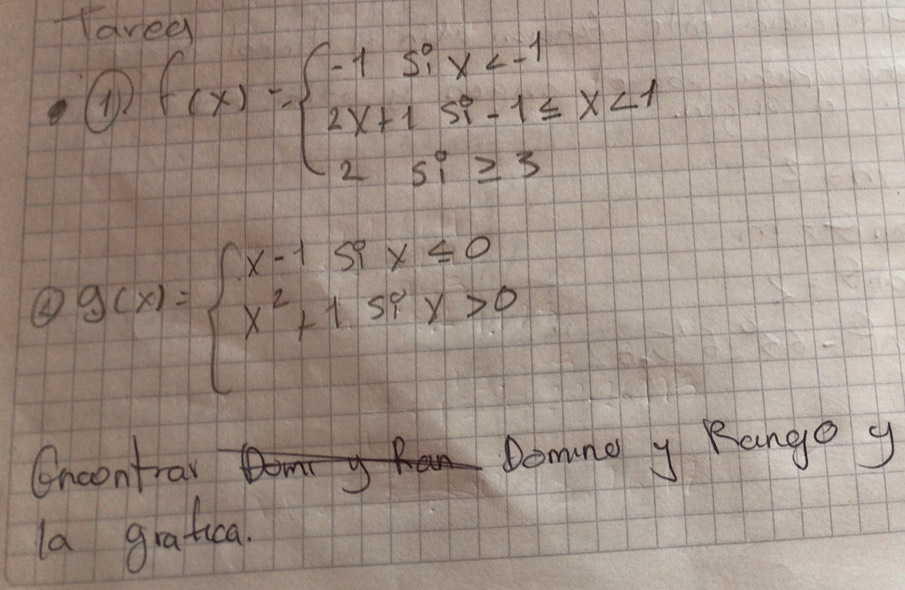 Tarea
① f(x) = { -1 si x < -1
2x+1 si -1 ≤ x < 1
2 si ≥ 3
② g(x) = { x-1 si x ≤ 0
x² + 1 si x > 0
Encontrar Domi y Ran Domino y Rango y
la grafica.